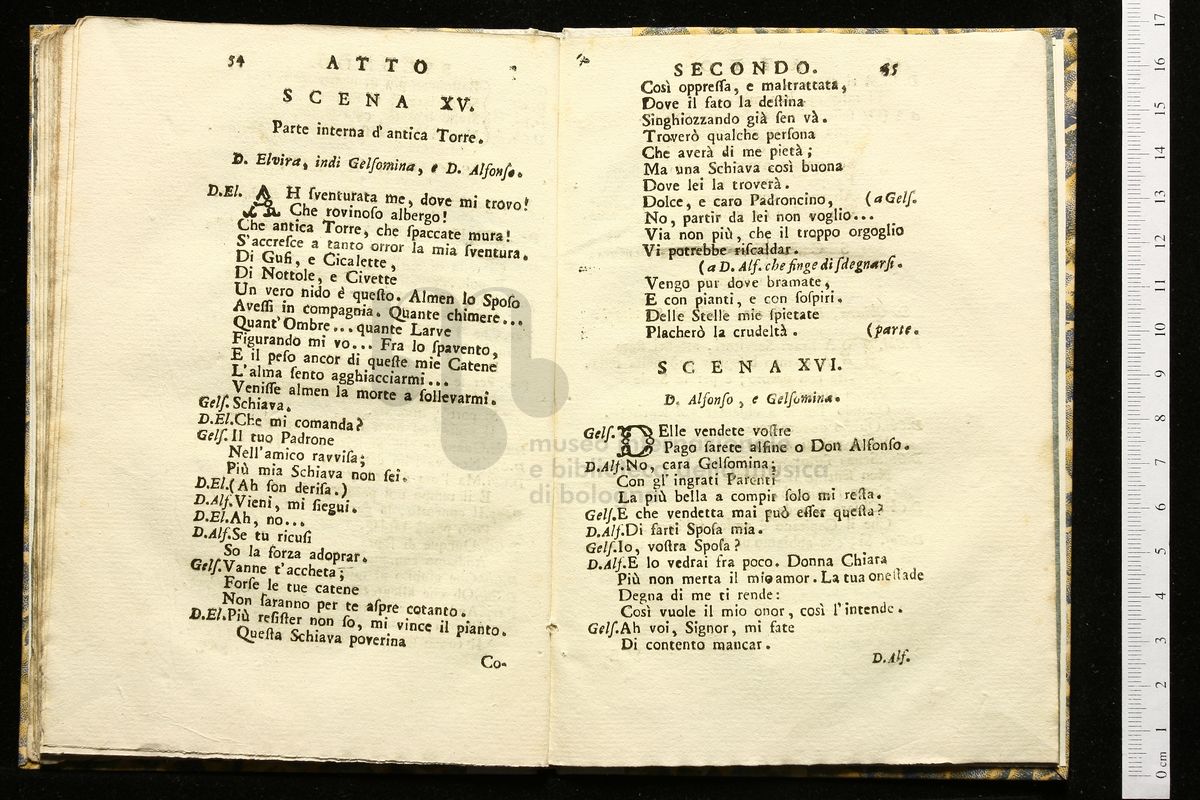 54 ATTO
SCENA XV.
Parte interna d' antica Torre.
D. Elvira, indi Gelſomina, e D. Alfonſo.
D.El. AH ſventurata me, dove mi trovo!
Che rovinoſo albergo!
Che antica Torre, che ſpaccate mura!
S'accreſce a tanto orror la mia ſventura.
Di Gufi, e Cicalette,
Di Nottole, e Civette
Un vero nido è queſto. Almen lo Spoſo
Aveſſi in compagnia. Quante chimere...
Quant' Ombre... quante Larve
Figurando mi vo... Fra lo ſpavento,
E il peſo ancor di queſte mie Catene
L'alma ſento agghiacciarmi...
Veniſſe almen la morte a ſollevarmi.
Gelſ. Schiava.
D.El. Che mi comanda?
Gelſ. Il tuo Padrone
Nell'amico ravviſa;
Più mia Schiava non ſei.
D.El. (Ah ſon deriſa.)
D.Alf. Vieni, mi ſiegui.
D.El. Ah, no...
D.Alf. Se tu ricuſi
So la forza adoprar.
Gelſ. Vanne t'accheta;
Forſe le tue catene
Non ſaranno per te aſpre cotanto.
D.El. Più reſiſter non ſo, mi vince il pianto.
Queſta Schiava poverina
Co-
SECONDO. 55
Così oppreſſa, e maltrattata,
Dove il fato la deſtina
Singhiozzando già ſen và.
Troverò qualche perſona
Che averà di me pietà;
Ma una Schiava così buona
Dove lei la troverà.
Dolce, e caro Padroncino, (a Gelſ.
No, partir da lei non voglio...
Via non più, che il troppo orgoglio
Vi potrebbe riſcaldar.
(a D. Alf. che finge di ſdegnarſi.
Vengo pur dove bramate,
E con pianti, e con ſoſpiri.
Delle Stelle mie ſpietate
Placherò la crudeltà. (parte.
SCENA XVI.
D. Alfonſo, e Gelſomina.
Gelſ. DElle vendete voſtre
Pago ſarete alfine o Don Alfonſo.
D.Alf. No, cara Gelſomina;
Con gl' ingrati Parenti
La più bella a compir ſolo mi reſta.
Gelſ. E che vendetta mai può eſſer queſta?
D.Alf. Di farti Spoſa mia.
Gelſ. Io, voſtra Spoſa?
D.Alf. E lo vedrai fra poco. Donna Chiara
Più non merta il mio amor. La tua oneſtade
Degna di me ti rende:
Così vuole il mio onor, così l'intende.
Gelſ. Ah voi, Signor, mi fate
Di contento mancar.
D.Alf.
museo internazionale
e biblioteca della musica
di bologna
0 cm 1 2 3 4 5 6 7 8 9 10 11 12 13 14 15 16 17